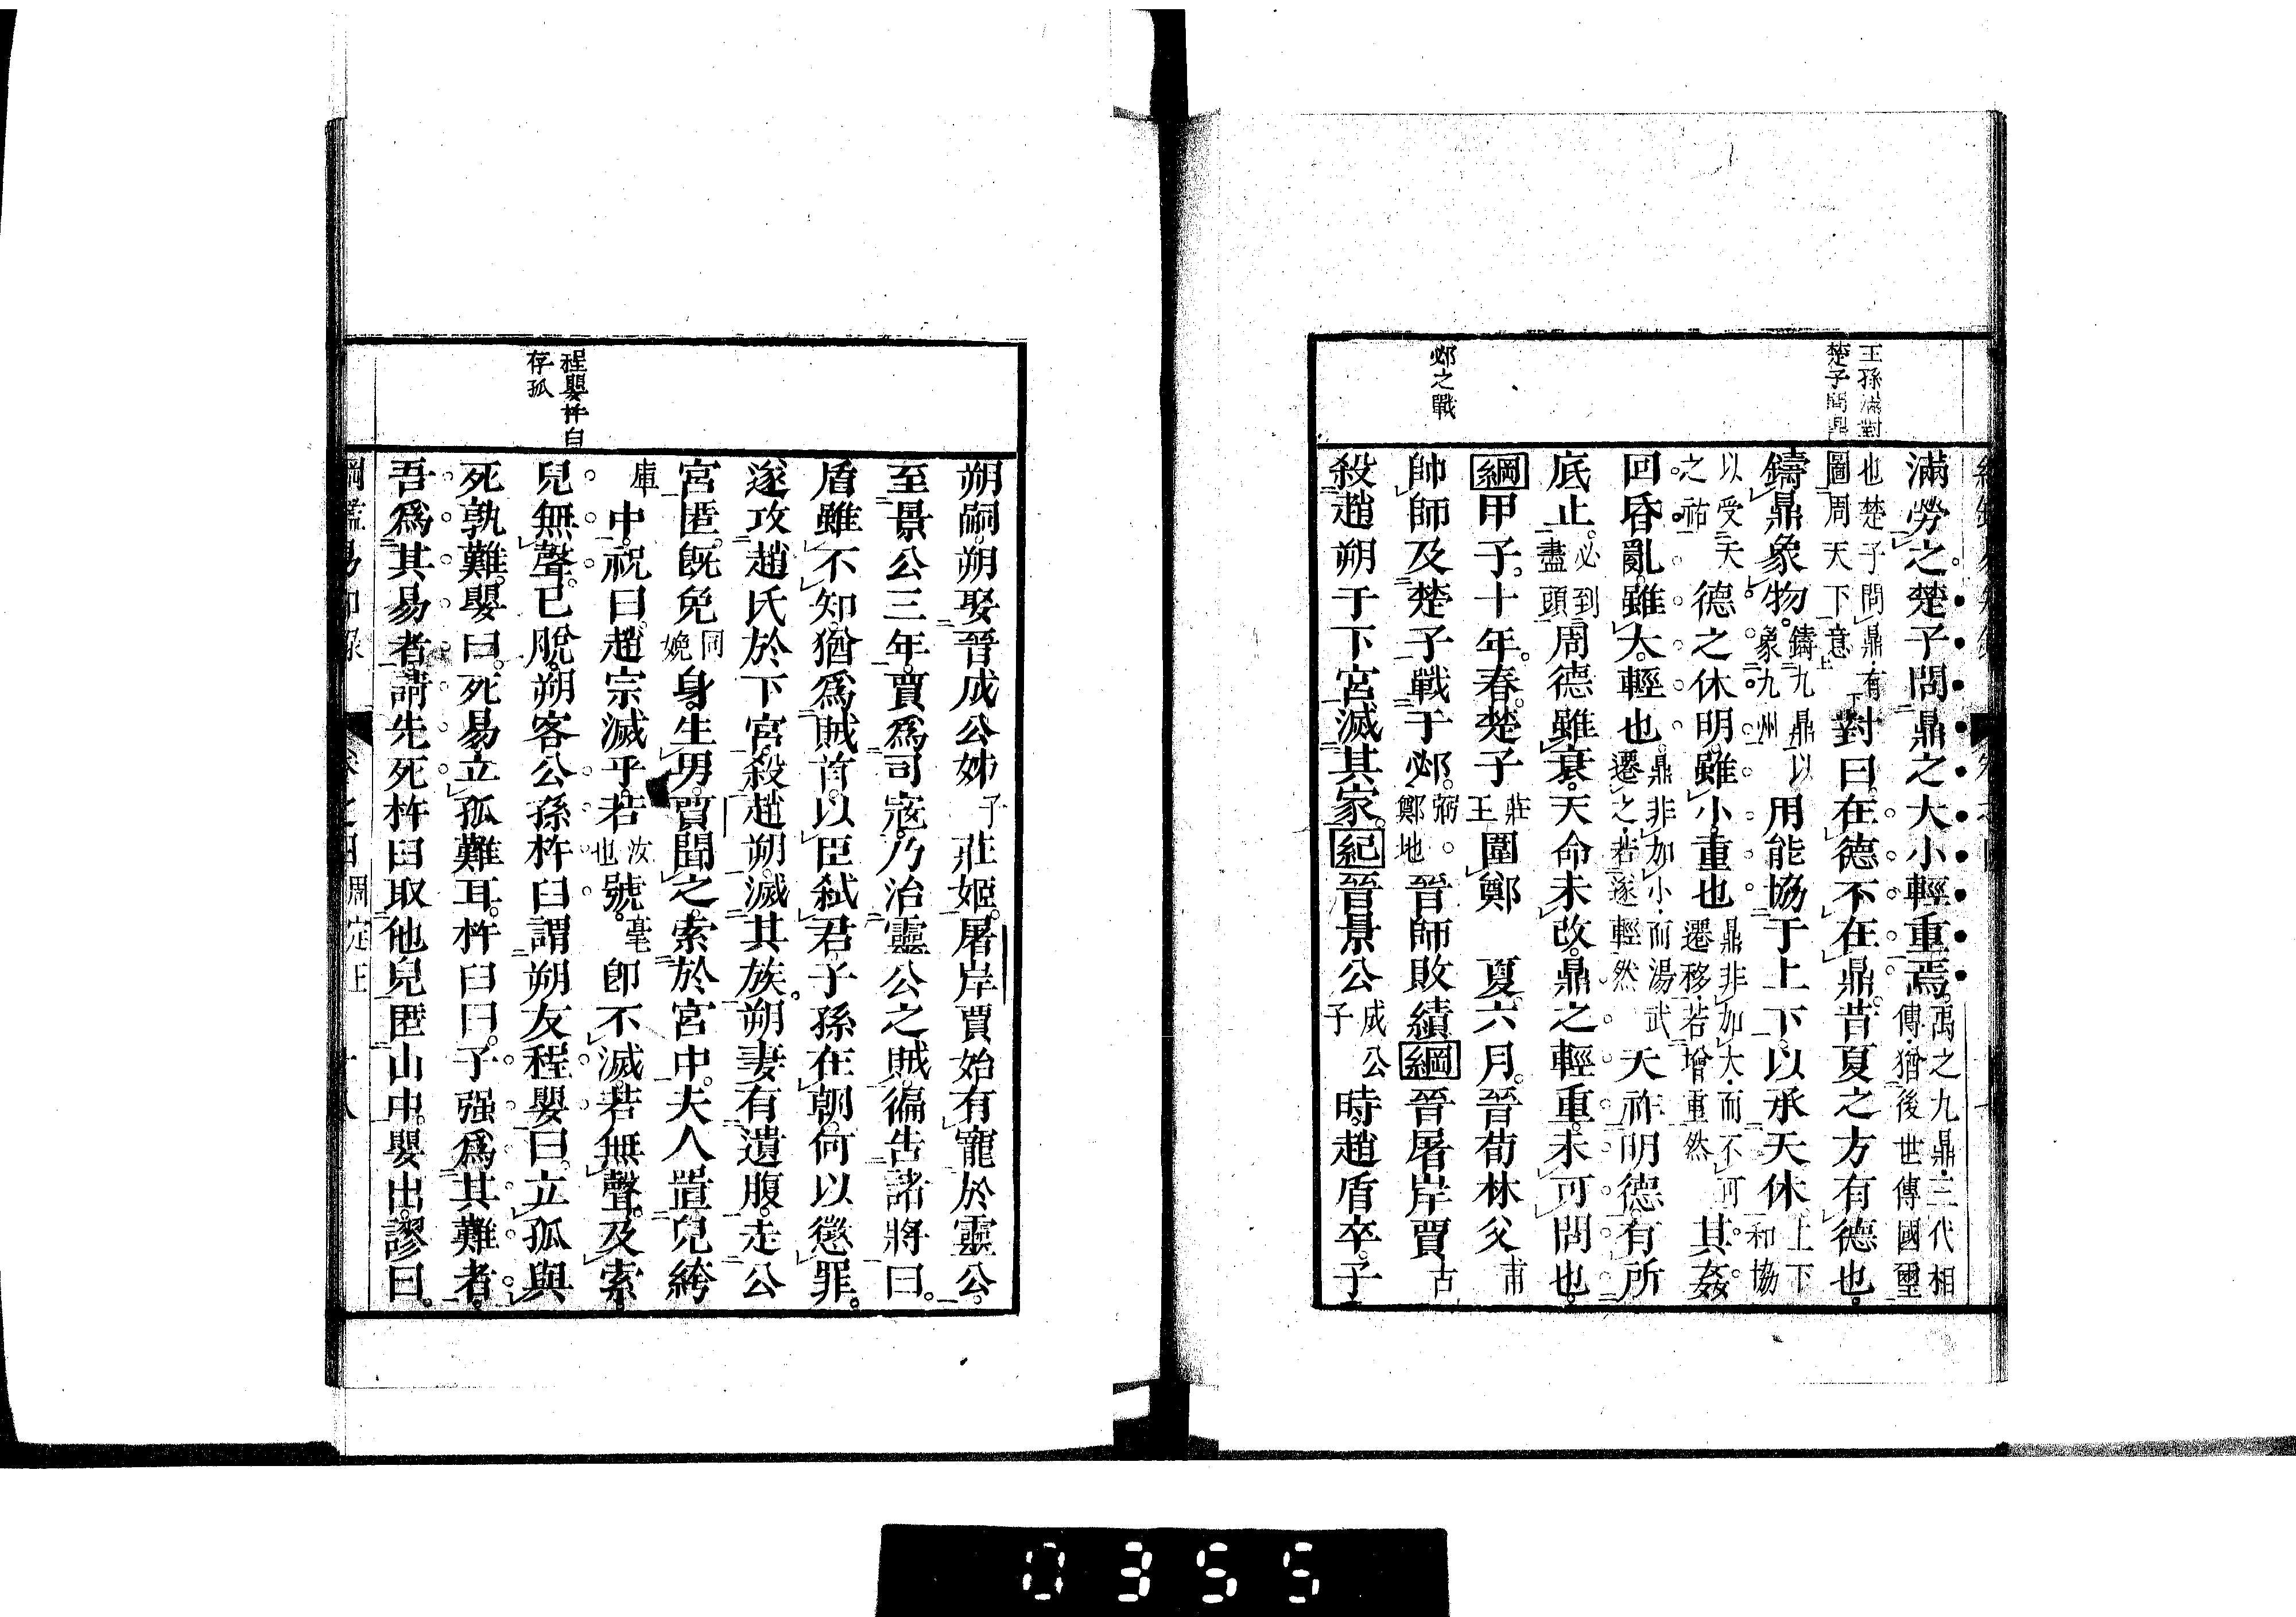 王孫滿對
楚子問鼎
邲之戰
滿勞之楚子問鼎之大小輕重焉禹之九鼎三代相傳猶後世傳國璽
也楚子問鼎有圖周天下意對曰在德不在鼎昔夏之方有德也
鑄鼎象物鑄九鼎以象九州用能協于上下以承天休上下和協
以受天之祐德之休明雖小重也鼎非加大而不可遷移若增重然其姦
回昏亂雖大輕也鼎非加小而湯武遷之若遂輕然天祚明德有所
底止必到盡頭周德雖衰天命未改鼎之輕重未可問也
綱甲子十年春楚子莊王圍鄭 夏六月晉荀林父甫
帥師及楚子戰于邲弼鄭地晉師敗績綱晉屠岸賈古
殺趙朔于下宮滅其家紀晉景公成公子時趙盾卒子
程嬰杵臼
存孤
朔嗣朔娶晉成公姊子莊姬屠岸賈始有寵於靈公
至景公三年賈爲司寇乃治靈公之賊徧告諸將曰
盾雖不知猶爲賊首以臣弒君子孫在朝何以懲罪
遂攻趙氏於下宮殺趙朔滅其族朔妻有遺腹走公
宮匿既免同娩身生男賈聞之索於宮中夫人置兒絝
庫中祝曰趙宗滅乎若汝也號毫卽不滅若無聲及索
兒無聲已脫朔客公孫杵臼謂朔友程嬰曰立孤與
死孰難嬰曰死易立孤難耳杵臼曰子强爲其難者
吾爲其易者請先死杵臼取他兒匿山中嬰出謬曰
綱鑑易知錄 卷之四 周定王 十八
0355